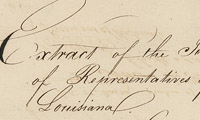 Extract of the
of Representatives
Louisiana.